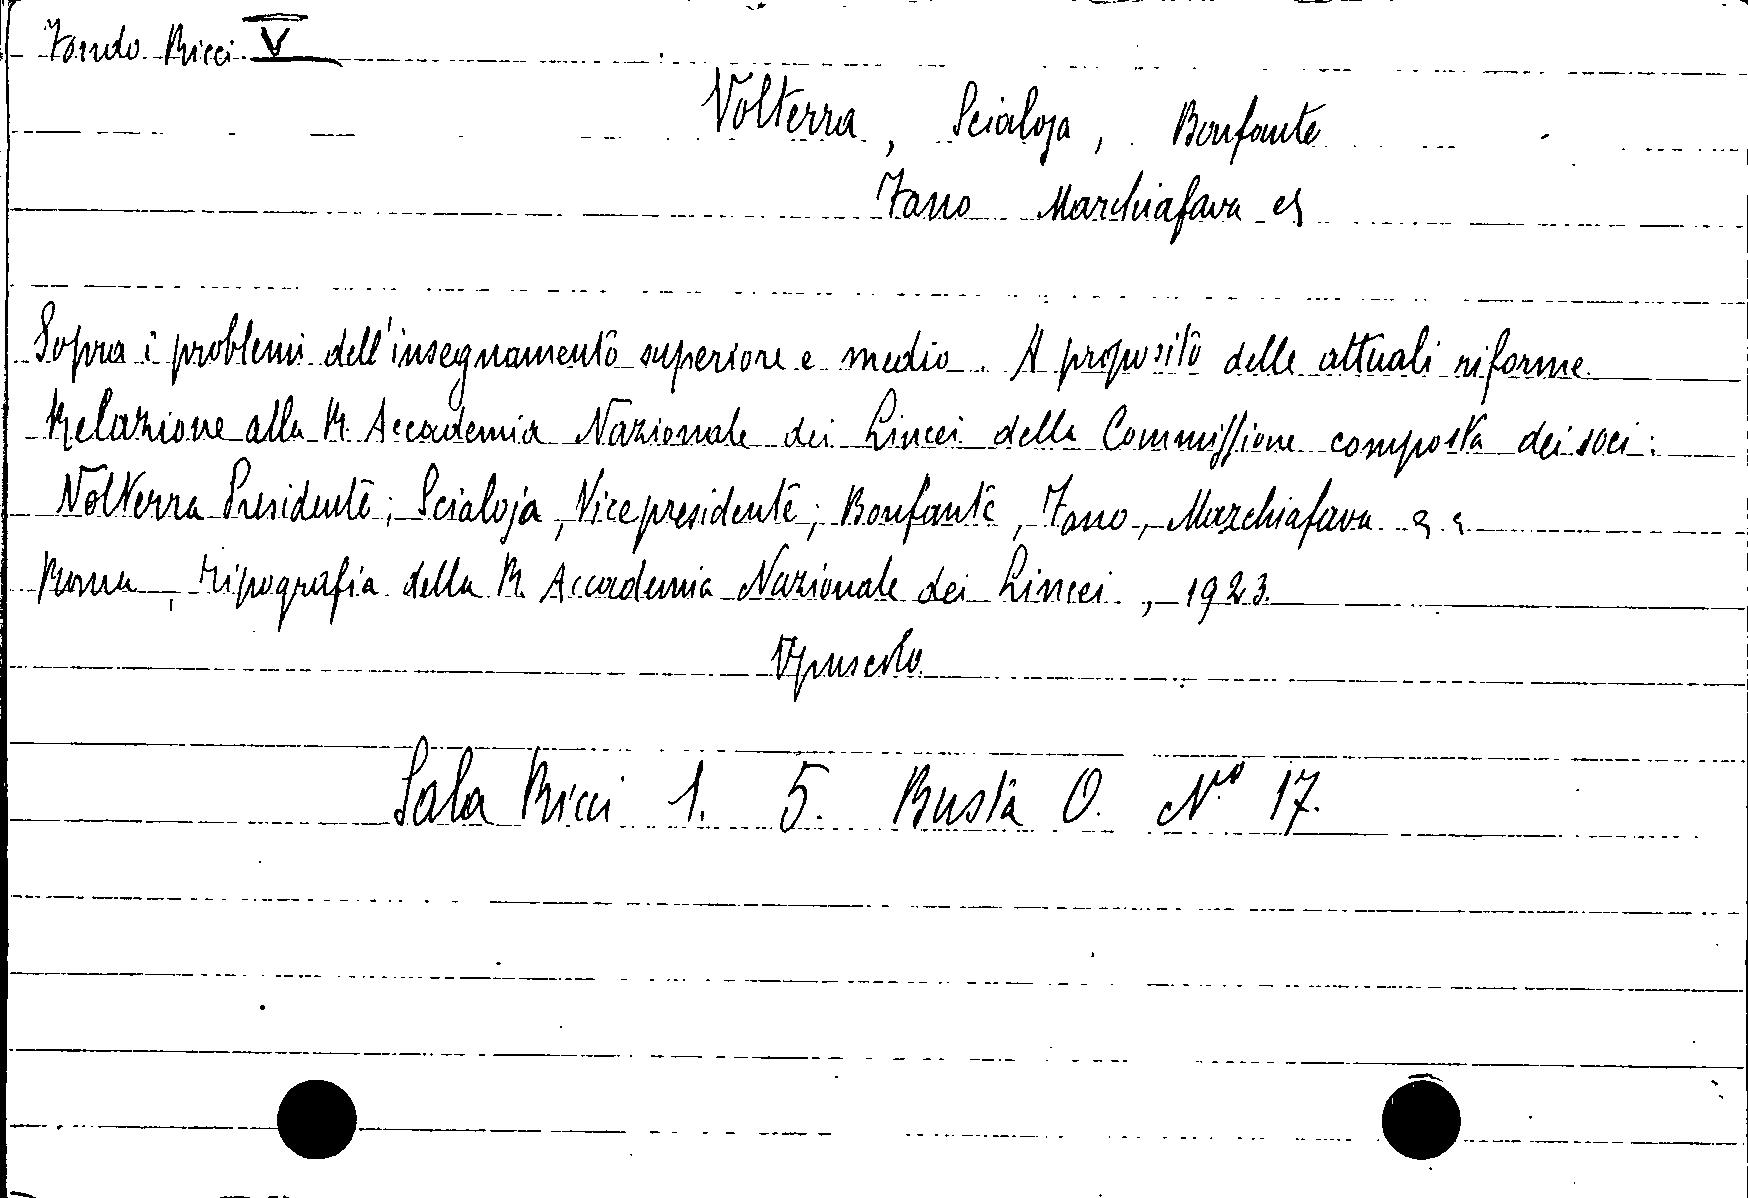 Fondo Ricci V
Volterra, Scialoja, Bonfante
Fano Marchiafava
Sopra i problemi dell'insegnamento superiore e medio. A proposito delle attuali riforme
Relazione alla R. Accademia Nazionale dei Lincei della Commissione composta dei soci:
Volterra Presidente; Scialoja, Vicepresidente; Bonfante, Fano, Marchiafava
Roma, Tipografia della R. Accademia Nazionale dei Lincei, 1923.
Opuscolo
Sala Ricci 1. 5. Busta O. N.º 17.